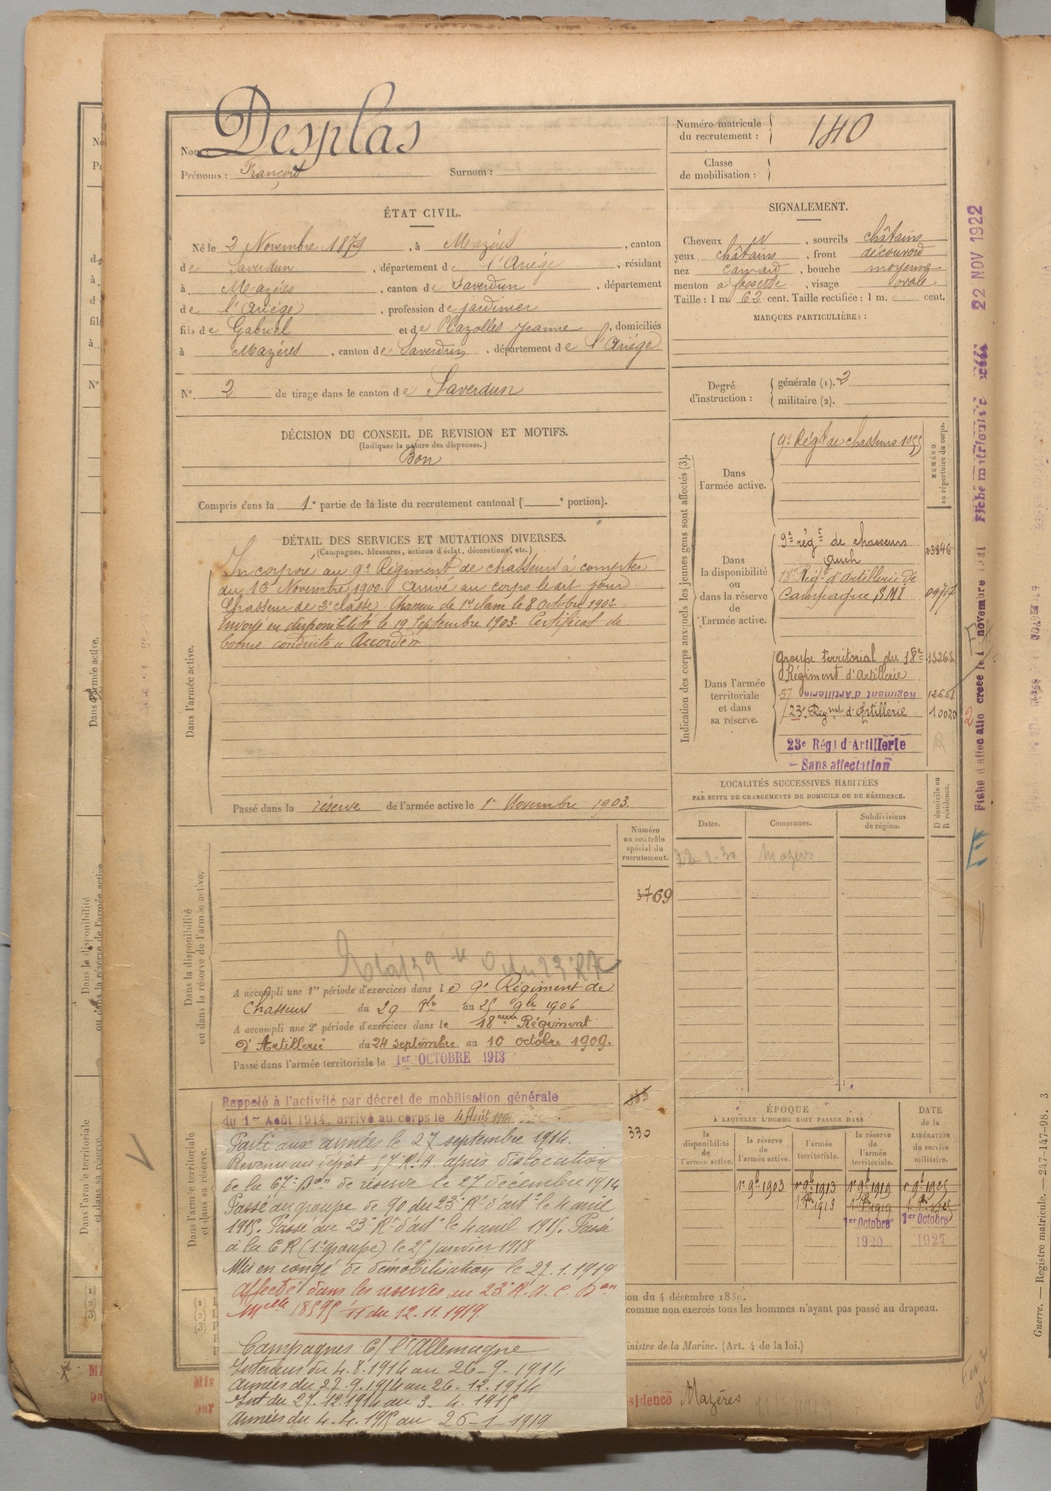 Nom : Desplas
Prénoms : François Surnom :
Numéro matricule du recrutement : 140
Classe de mobilisation :
ÉTAT CIVIL.
Né le 2 Novembre 1879, à Mazéres, canton
de Saverdun, département de l'Ariége, résidant
à Mazéres, canton de Saverdun, département
de l'Ariége, profession de jardinier
fils de Gabriel et de Plazolles Jeanne, domiciliés
à Mazéres, canton de Saverdun, département de l'Ariége
N° 2 de tirage dans le canton de Saverdun
SIGNALEMENT.
Cheveux sourcils châtains
yeux châtains, front découvert
nez camard, bouche moyenne
menton à fossette, visage ovale
Taille : 1 m. 62 cent. Taille rectifiée : 1 m. cent.
MARQUES PARTICULIÈRES :
Degré d'instruction : générale (1). 2
militaire (2).
DÉCISION DU CONSEIL DE REVISION ET MOTIFS.
(Indiquer la nature des dispenses.)
Bon
Compris dans la 1e partie de la liste du recrutement cantonal ( e portion).
DÉTAIL DES SERVICES ET MUTATIONS DIVERSES.
(Campagnes, blessures, actions d'éclat, décorations, etc.)
Dans l'armée active.
Incorporé au 9e Régiment de chasseurs à compter
du 16 Novembre 1900. Arrivé au corps le dit jour
Chasseur de 2e classe. Chasseur de 1re classe le 8 Octobre 1902
Envoyé en disponibilité le 19 Septembre 1903. Certificat de
bonne conduite "Accordé"
Passé dans la réserve de l'armée active le 1er Novembre 1903.
Indication des corps auxquels les jeunes gens sont affectés (3).
NUMÉRO au répertoire du corps.
Dans l'armée active.
9e Régt de chasseurs
Dans la disponibilité ou dans la réserve de l'armée active.
9e régt de chasseurs
Auch
18e Régt d'artillerie de
campagne
Dans l'armée territoriale et dans sa réserve.
Groupe territorial du 18e
Régiment d'Artillerie
57 Régiment d'Artillerie
23e Régmt d'Artillerie
10020
23e Régt d'Artillerie
— Sans affectation
LOCALITÉS SUCCESSIVES HABITÉES
PAR SUITE DE CHANGEMENTS DE DOMICILE OU DE RÉSIDENCE.
Dates. Communes. Subdivisions de région. D domicile ou R résidence.
Mazères
Dans la disponibilité ou dans la réserve de l'armée active.
Numéro au contrôle spécial du recrutement.
69
A accompli une 1re période d'exercices dans le 9e Régiment de
Chasseurs du 29 8bre au 25 9bre 1906
A accompli une 2e période d'exercices dans le 18eme Régiment
d'Artillerie du 24 septembre au 10 octobre 1909.
Passé dans l'armée territoriale le 1er OCTOBRE 1913
Dans l'armée territoriale et dans sa réserve.
Rappelé à l'activité par décret de mobilisation générale
du 1er Août 1914, arrivé au corps le 4 Août 1914
330
Parti aux armées le 27 septembre 1914.
Revenu au dépôt 57 R.A. après dislocation
de la 67e Don de réserve le 27 décembre 1914
Passé au groupe de 90 du 23e Rt d'artie le 4 avril
1915. Passé au 23e Rt d'artie le 4 avril 1915. Passé
à la C R (1er groupe) le 25 janvier 1918
Mis en congé de démobilisation le 27.1.1919
affecté dans les réserves au 23e R.A.C. Don
Mlle 18595 11 du 12.11.1919
Campagnes C/ l'Allemagne
Intérieur du 4.8.1914 au 26-9-1914
Armées du 27.9.1914 au 26.12.1914
Int du 27.12.1914 au 3-4.1915
Armées du 4.4.1915 au 26-1-1919
ÉPOQUE
À LAQUELLE L'HOMME DOIT PASSER DANS
la disponibilité de l'armée active.
la réserve de l'armée active.
l'armée territoriale.
la réserve de l'armée territoriale.
DATE de la LIBÉRATION du service militaire.
1er 9bre 1903 1er 9bre 1913 1er 9bre 1919
1er Octobre 1920
1er Octobre 1927
comme non exercés tous les hommes n'ayant pas passé au drapeau.
ministre de la Marine. (Art. 4 de la loi.)
résidence Mazéres
Fiche matricule créée 22 NOV 1922
Guerre. — Registre matricule. — 247-147-98. 3